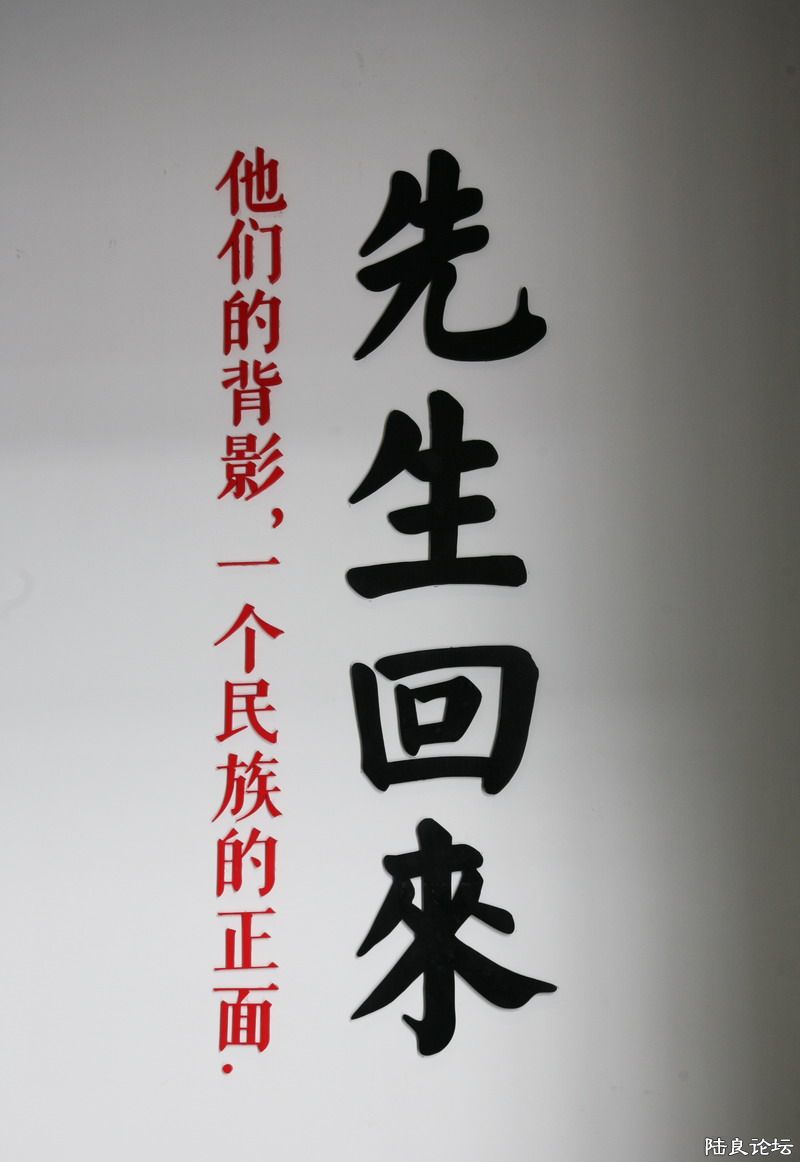 先生回來
他们的背影，一个民族的正面.
陆良论坛